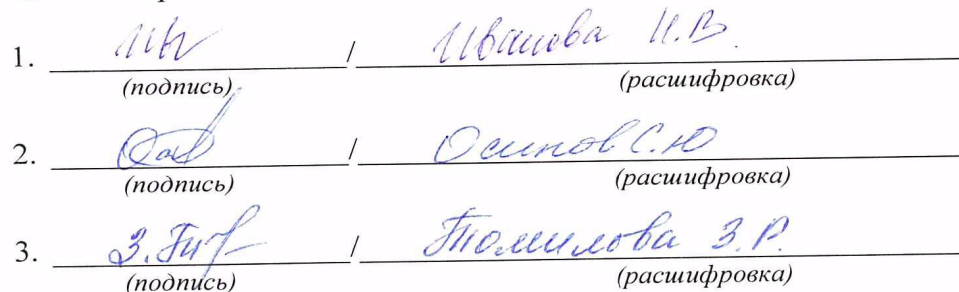 1. / Иванова И.В.
(подпись) (расшифровка)
2. / Осипов С.Ю
(подпись) (расшифровка)
3. З. / Томилова З.Р.
(подпись) (расшифровка)